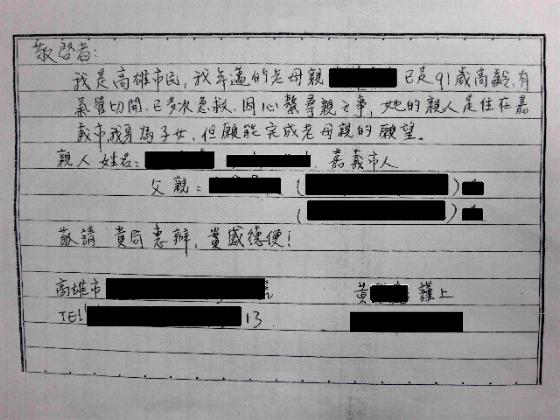 敬啓者:
我是高雄市民,我年邁的老母親 已是91歲高齡,有
氣管切開,已多次急救,因心繫尋親之事,她的親人是住在嘉
義市我身為子女,但願能完成老母親的願望。
親人姓名: 嘉義市人
父親: ( )
( )
敬請 貴局惠辦,實感德便!
高雄市 黃 謹上
TEL 13